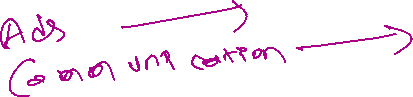 Ads →
Communication →